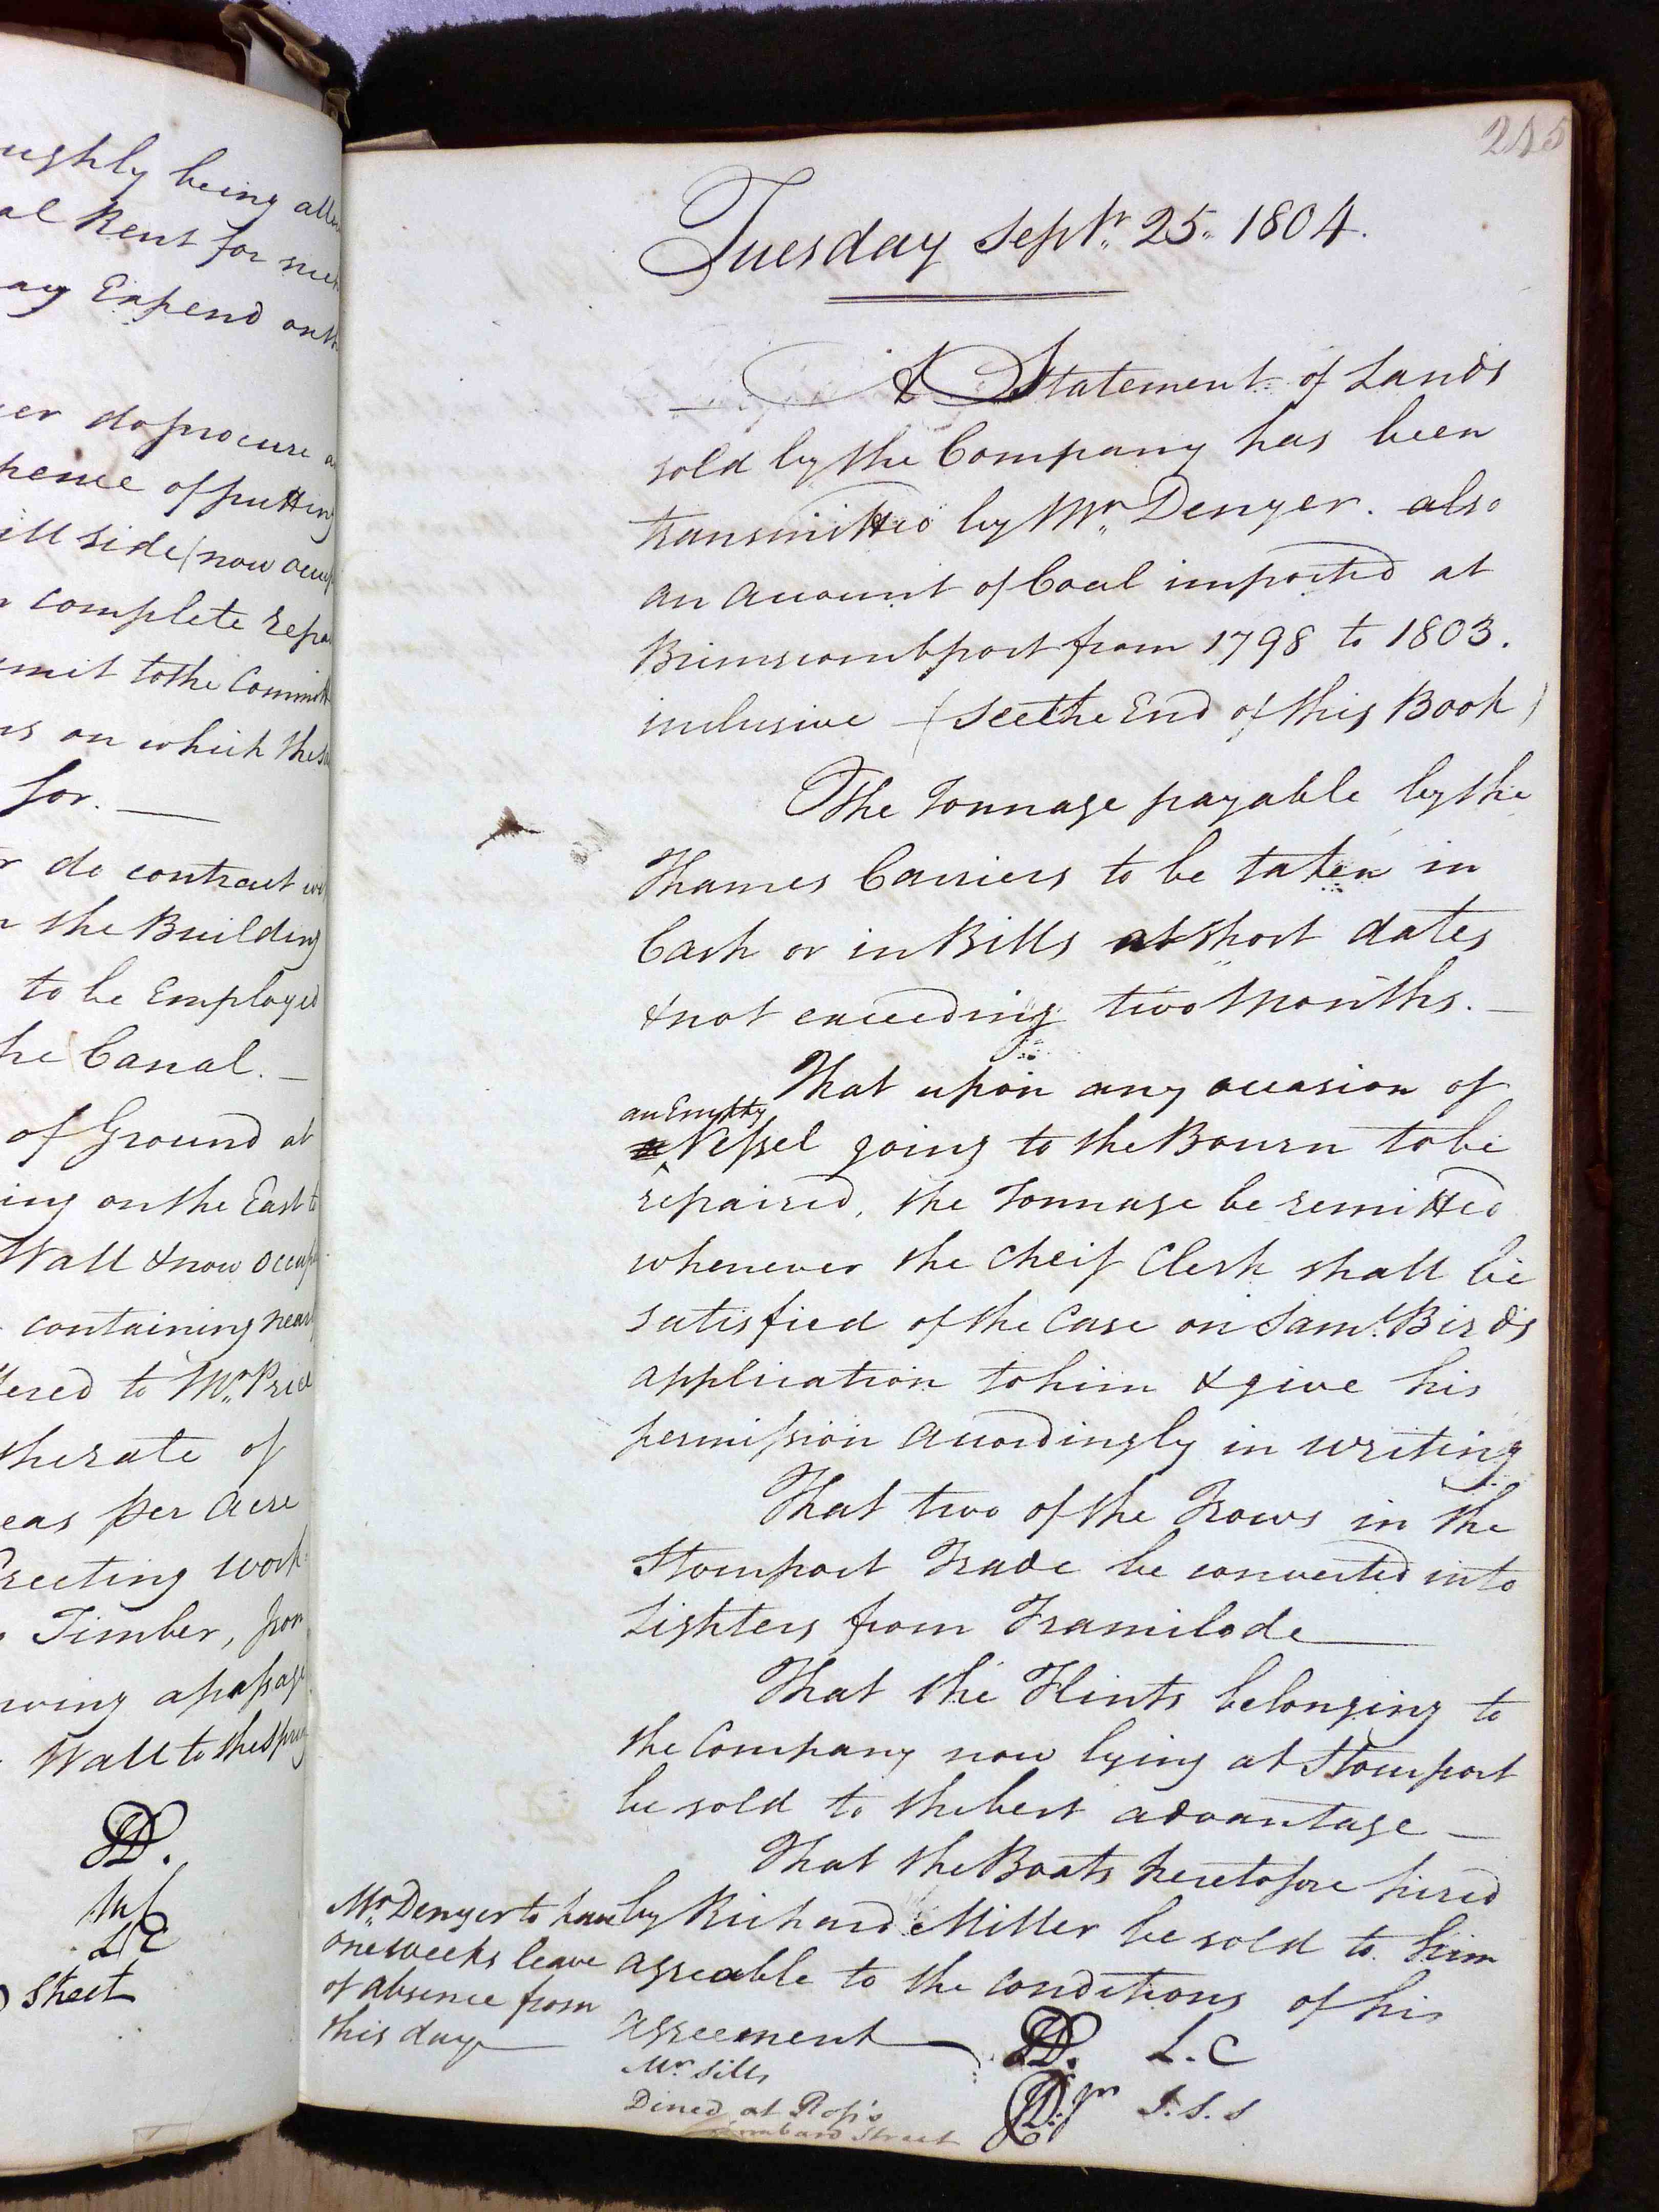 ughly being
al Rent for such
ay Expend on
er do procure
pence of putting
ill side (now
complete
mit to the
ns on which
for. —
do contract
the Building
to be Employed
he Canal. —
of Ground at
ing on the East
Wall & now
containing
ered to Mr. Price
the rate of
eas per Acre
recting
Timber,
wing a passage
Wall to the
D.
LC
Street
Tuesday Septr. 25. 1804.
A Statement of Lands
sold by the Company has been
transmitted by Mr. Denyer. also
an account of Coal imported at
Brimscombport from 1798 to 1803.
inclusive — (see the End of this Book)
The Tonnage payable by the
Thames Carriers to be taken in
Cash or in Bills at short dates
& not exceeding two Months. —
That upon any occasion of
an Empty
Vessel going to the Bourn to be
repaired, the Tonnage be remitted
whenever the Cheif Clerk shall be
satisfied of the Case on Saml. Bird's
application to him & give his
permission accordingly in writing
That two of the Trows in the
Stourport Trade be converted into
Lighters from Framilode —
That the Flints belonging to
the Company now lying at Stourport
be sold to the best advantage —
That the Boats heretofore hired
by Richard Miller be sold to him
agreable to the conditions of his
agreement —
Mr. Denyer to have
one weeks leave
of absence from
this day —
D. L.C
D. jr J.S.S
Mr. Sills
Dined at Ross's
Lombard Street